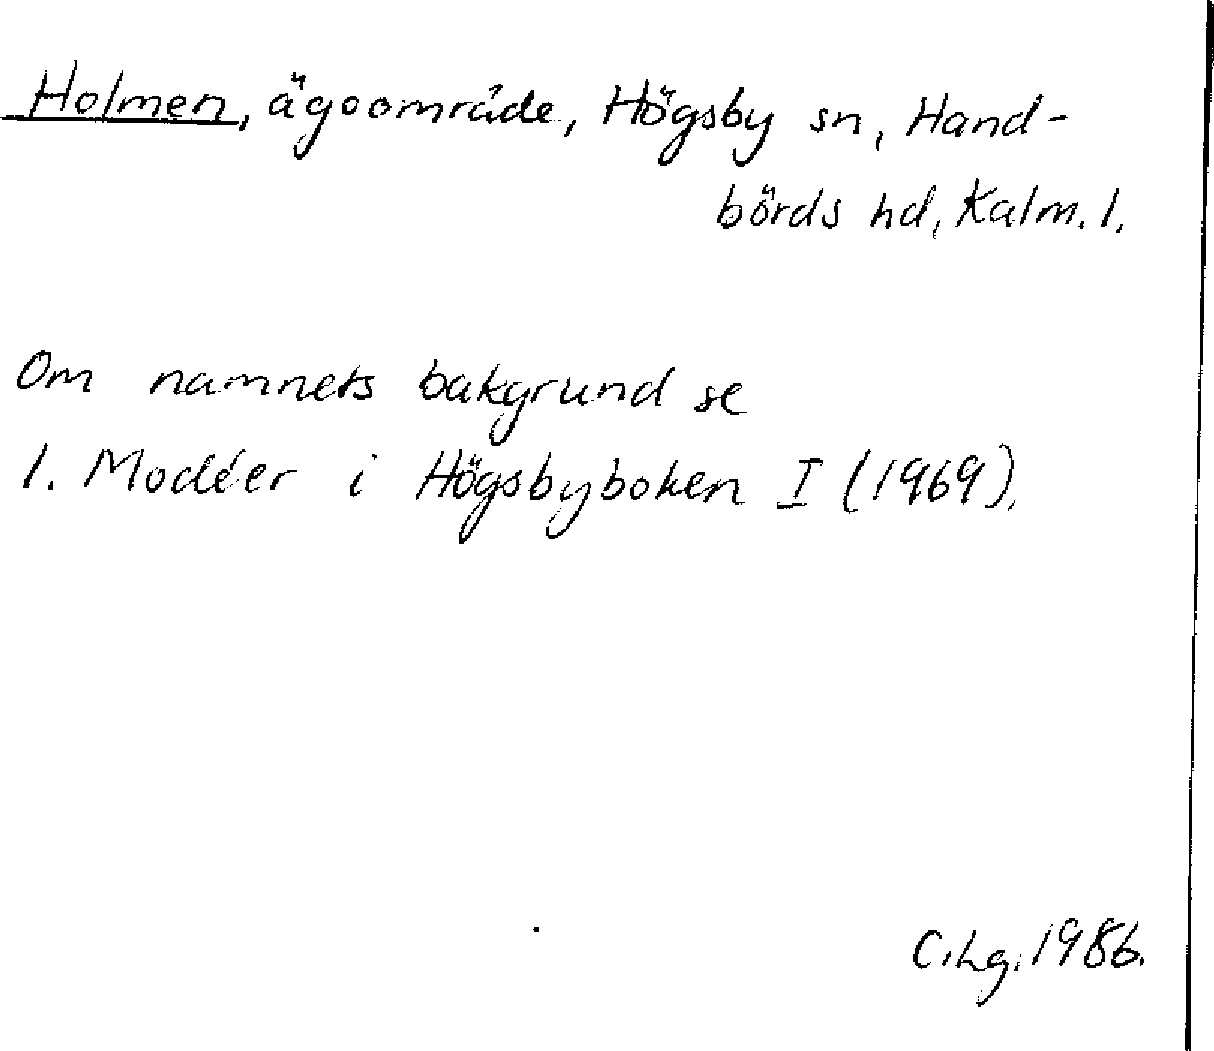 Holmen, ägoområde, Högsby sn, Hand-
börds hd, Kalm. l.
Om namnets bakgrund se
I. Modéer i Högsbyboken I (1969).
C.Lg. 1986.